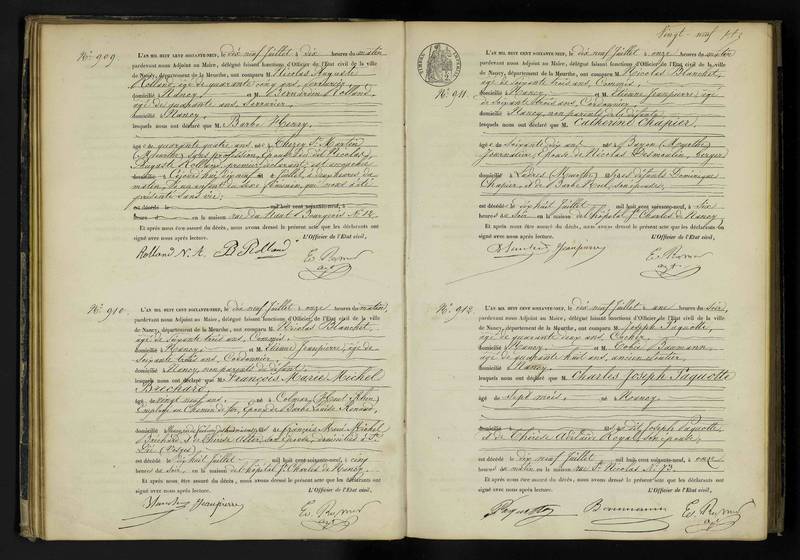 N° 909.
L'AN MIL HUIT CENT SOIXANTE-NEUF, le dix neuf Juillet à dix heures du matin
pardevant nous Adjoint au Maire, délégué faisant fonctions d'Officier de l'État civil de la ville
de Nancy, département de la Meurthe, ont comparu M. Nicolas Auguste
Rolland, âgé de quarante cinq ans, serrurier
domicilié à Nancy et M. Bernardin Rolland
âgé de quarante ans, Serrurier
domicilié à Nancy
lesquels nous ont déclaré que M. Barbe Henry
âgé de quarante quatre ans né à St Martin
(Meurthe) sans profession, épouse du dit Nicolas
Auguste Rolland, premier déclarant, est accouchée
Cejourd'hui dix neuf Juillet, à deux heures du
matin, d'un enfant du sexe féminin, qui nous a été
présenté sans vie;
est décédé le mil huit cent soixante-neuf, à
heures en la maison rue du Haut Bourgeois N° 12
Et après nous être assuré du décès, nous avons dressé le présent acte que les déclarants ont
signé avec nous après lecture. L'Officier de l'État civil,
Rolland N. A. B Rolland
N° 910.
L'AN MIL HUIT CENT SOIXANTE-NEUF, le dix neuf Juillet à onze heures du matin,
pardevant nous Adjoint au Maire, délégué faisant fonctions d'Officier de l'État civil de la ville
de Nancy, département de la Meurthe, ont comparu M. Nicolas Blanchet
âgé de soixante trois ans, Commis
domicilié à Nancy et M. Etienne Jeanpierre, âgé de
soixante trois ans, Cordonnier
domicilié à Nancy, non parents du défunt
lesquels nous ont déclaré que M. François Marie Michel
Brechard
âgé de vingt neuf ans né à Colmar (Haut Rhin)
Employé au Chemin de fer, Époux de Barbe Louise
domicilié à fils de François Marie Michel
Brechard et de Thérèse son épouse, domiciliés à St
Dié (Vosges)
est décédé le dix huit Juillet mil huit cent soixante-neuf, à cinq
heures du soir, en la maison de l'hôpital St Charles de Nancy
Et après nous être assuré du décès, nous avons dressé le présent acte que les déclarants ont
signé avec nous après lecture. L'Officier de l'État civil,
Jeanpierre
Vingt-neuf
N° 911.
L'AN MIL HUIT CENT SOIXANTE-NEUF, le dix neuf Juillet à onze heures du matin
pardevant nous Adjoint au Maire, délégué faisant fonctions d'Officier de l'État civil de la ville
de Nancy, département de la Meurthe, ont comparu M. Nicolas Blanchet,
âgé de soixante trois ans, Commis
domicilié à Nancy et M. Etienne Jeanpierre, âgé
de soixante trois ans, Cordonnier
domicilié à Nancy, non parents de la défunte
lesquels nous ont déclaré que M. Catherine Chapier
âgé de soixante dix ans né à Bayon (Meurthe)
journalière, épouse de Nicolas Desmoulin, berger
domicilié à Ludres (Meurthe) fille des défunts Dominique
Chapier, et de Barbe son épouse
est décédé le dix huit Juillet mil huit cent soixante-neuf, à six
heures du soir en la maison de l'hôpital St Charles de Nancy
Et après nous être assuré du décès, nous avons dressé le présent acte que les déclarants ont
signé avec nous après lecture. L'Officier de l'État civil,
Jeanpierre
N° 912.
L'AN MIL HUIT CENT SOIXANTE-NEUF, le dix neuf Juillet à une heures du soir,
pardevant nous Adjoint au Maire, délégué faisant fonctions d'Officier de l'État civil de la ville
de Nancy, département de la Meurthe, ont comparu M. Joseph Paquotte,
âgé de quarante deux ans, Cocher
domicilié à Nancy et M. Baumann
âgé de quarante huit ans, ancien
domicilié à Nancy
lesquels nous ont déclaré que M. Charles Joseph Paquotte
âgé de Sept mois né à Nancy
fils du dit Joseph Paquotte
et de Thérèse Adélaïde Royal, son épouse,
est décédé le dix neuf Juillet mil huit cent soixante-neuf, à onze
heures du matin en la maison rue St Nicolas N° 73
Et après nous être assuré du décès, nous avons dressé le présent acte que les déclarants ont
signé avec nous après lecture. L'Officier de l'État civil,
Paquotte Baumann